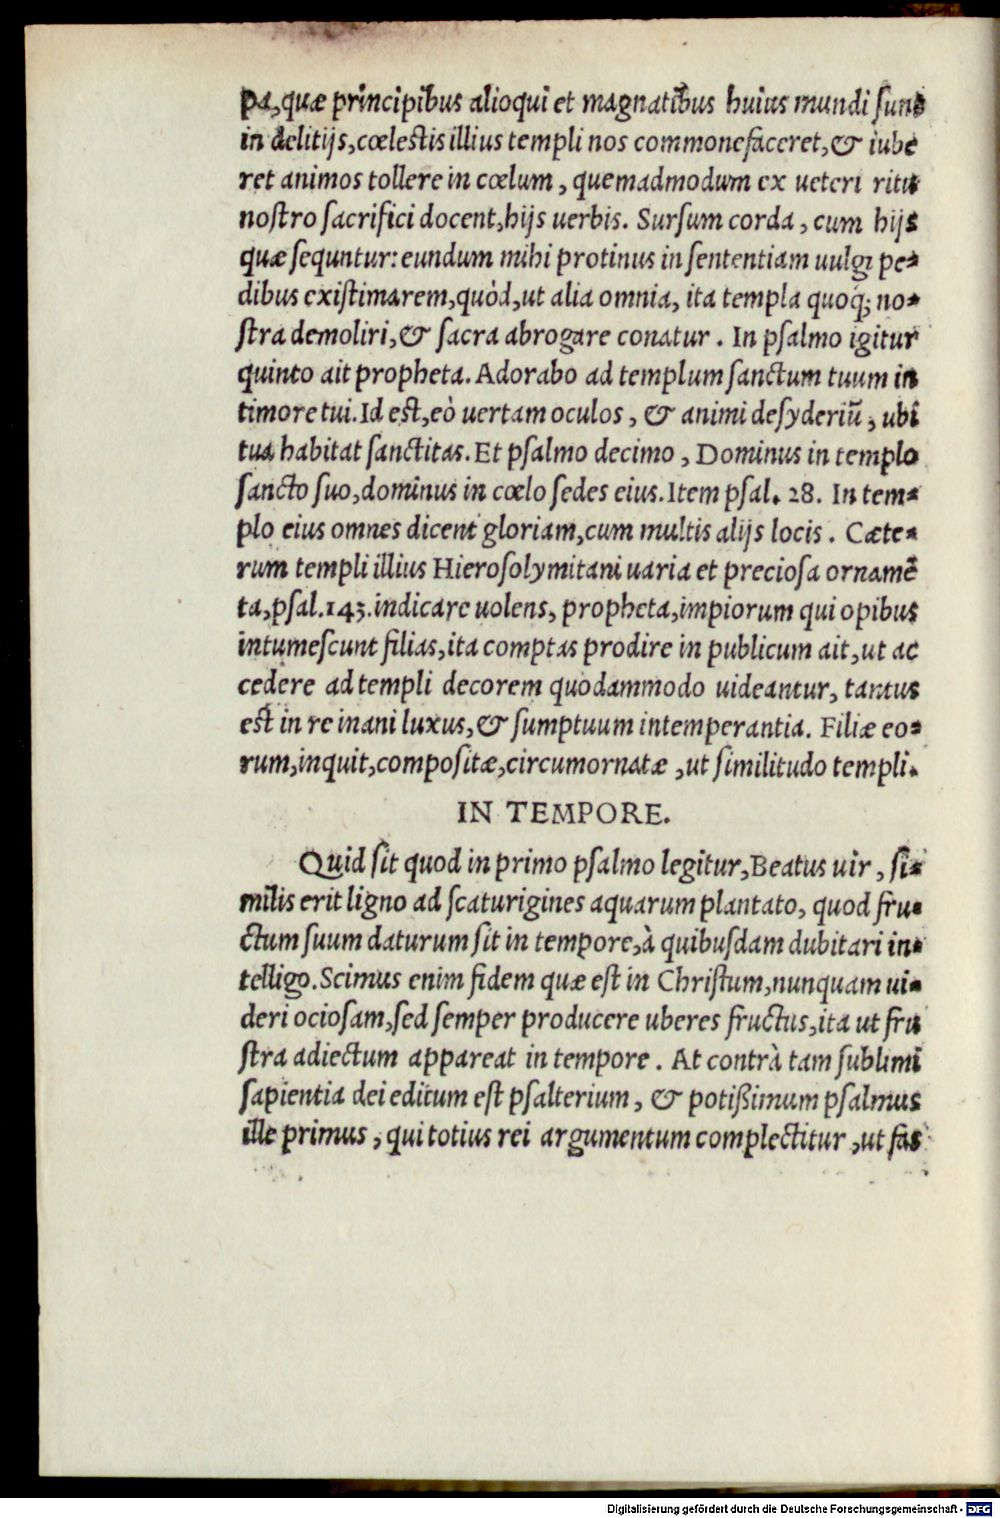 pa, quæ principibus alioqui et magnatibus huius mundi sunt
in delitijs, cœlestis illius templi nos commonefaceret, & iube
ret animos tollere in cœlum, quemadmodum ex ueteri ritu
nostro sacrifici docent, hijs uerbis. Sursum corda, cum hijs
quæ sequntur: eundum mihi protinus in sententiam uulgi pe-
dibus existimarem, quòd, ut alia omnia, ita templa quoq; no-
stra demoliri, & sacra abrogare conatur. In psalmo igitur
quinto ait propheta. Adorabo ad templum sanctum tuum in
timore tui. Id est, eò uertam oculos, & animi desyderiũ, ubi
tua habitat sanctitas. Et psalmo decimo, Dominus in templo
sancto suo, dominus in cœlo sedes eius. Item psal. 28. In tem-
plo eius omnes dicent gloriam, cum multis alijs locis. Cæte-
rum templi illius Hierosolymitani uaria et preciosa ornamẽ
ta, psal. 143. indicare uolens, propheta, impiorum qui opibus
intumescunt filias, ita comptas prodire in publicum ait, ut ac
cedere ad templi decorem quodammodo uideantur, tantus
est in re inani luxus, & sumptuum intemperantia. Filiæ eo-
rum, inquit, compositæ, circumornatæ, ut similitudo templi.
IN TEMPORE.
Quid sit quod in primo psalmo legitur, Beatus uir, si-
milis erit ligno ad scaturigines aquarum plantato, quod fru-
ctum suum daturum sit in tempore, à quibusdam dubitari in-
telligo. Scimus enim fidem quæ est in Christum, nunquam ui-
deri ociosam, sed semper producere uberes fructus, ita ut fru
stra adiectum appareat in tempore. At contrà tam sublimi
sapientia dei editum est psalterium, & potißimum psalmus
ille primus, qui totius rei argumentum complectitur, ut fas
Digitalisierung gefördert durch die Deutsche Forschungsgemeinschaft - DFG